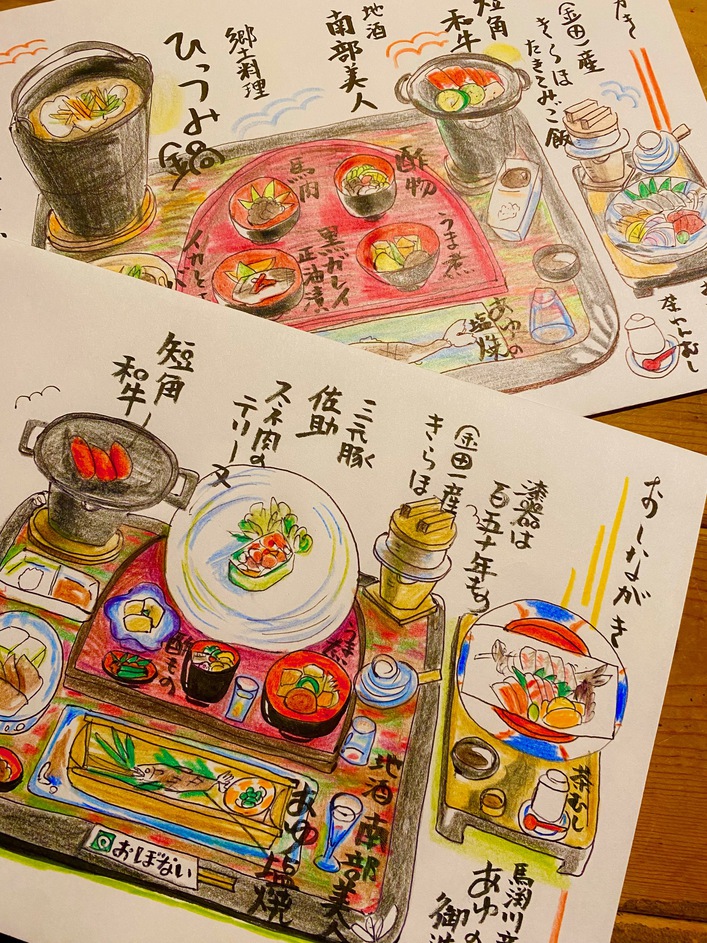 短角
和牛
地酒
南部美人
郷土料理
ひっつみ鍋
金田一産
きらほ
たきこみご飯
馬肉
酢物
うま煮
黒ガレイ
正油漬
あゆの
塩焼
茶わんむし
おしながき
漆器は
百五十年もの
金田一産
きらほ
三元豚
佐助
スネ肉の
テリーヌ
短角
和牛
酢もの
茶むし
地酒 南部美人
あゆ塩焼
おぼない
馬渕川産
あゆの